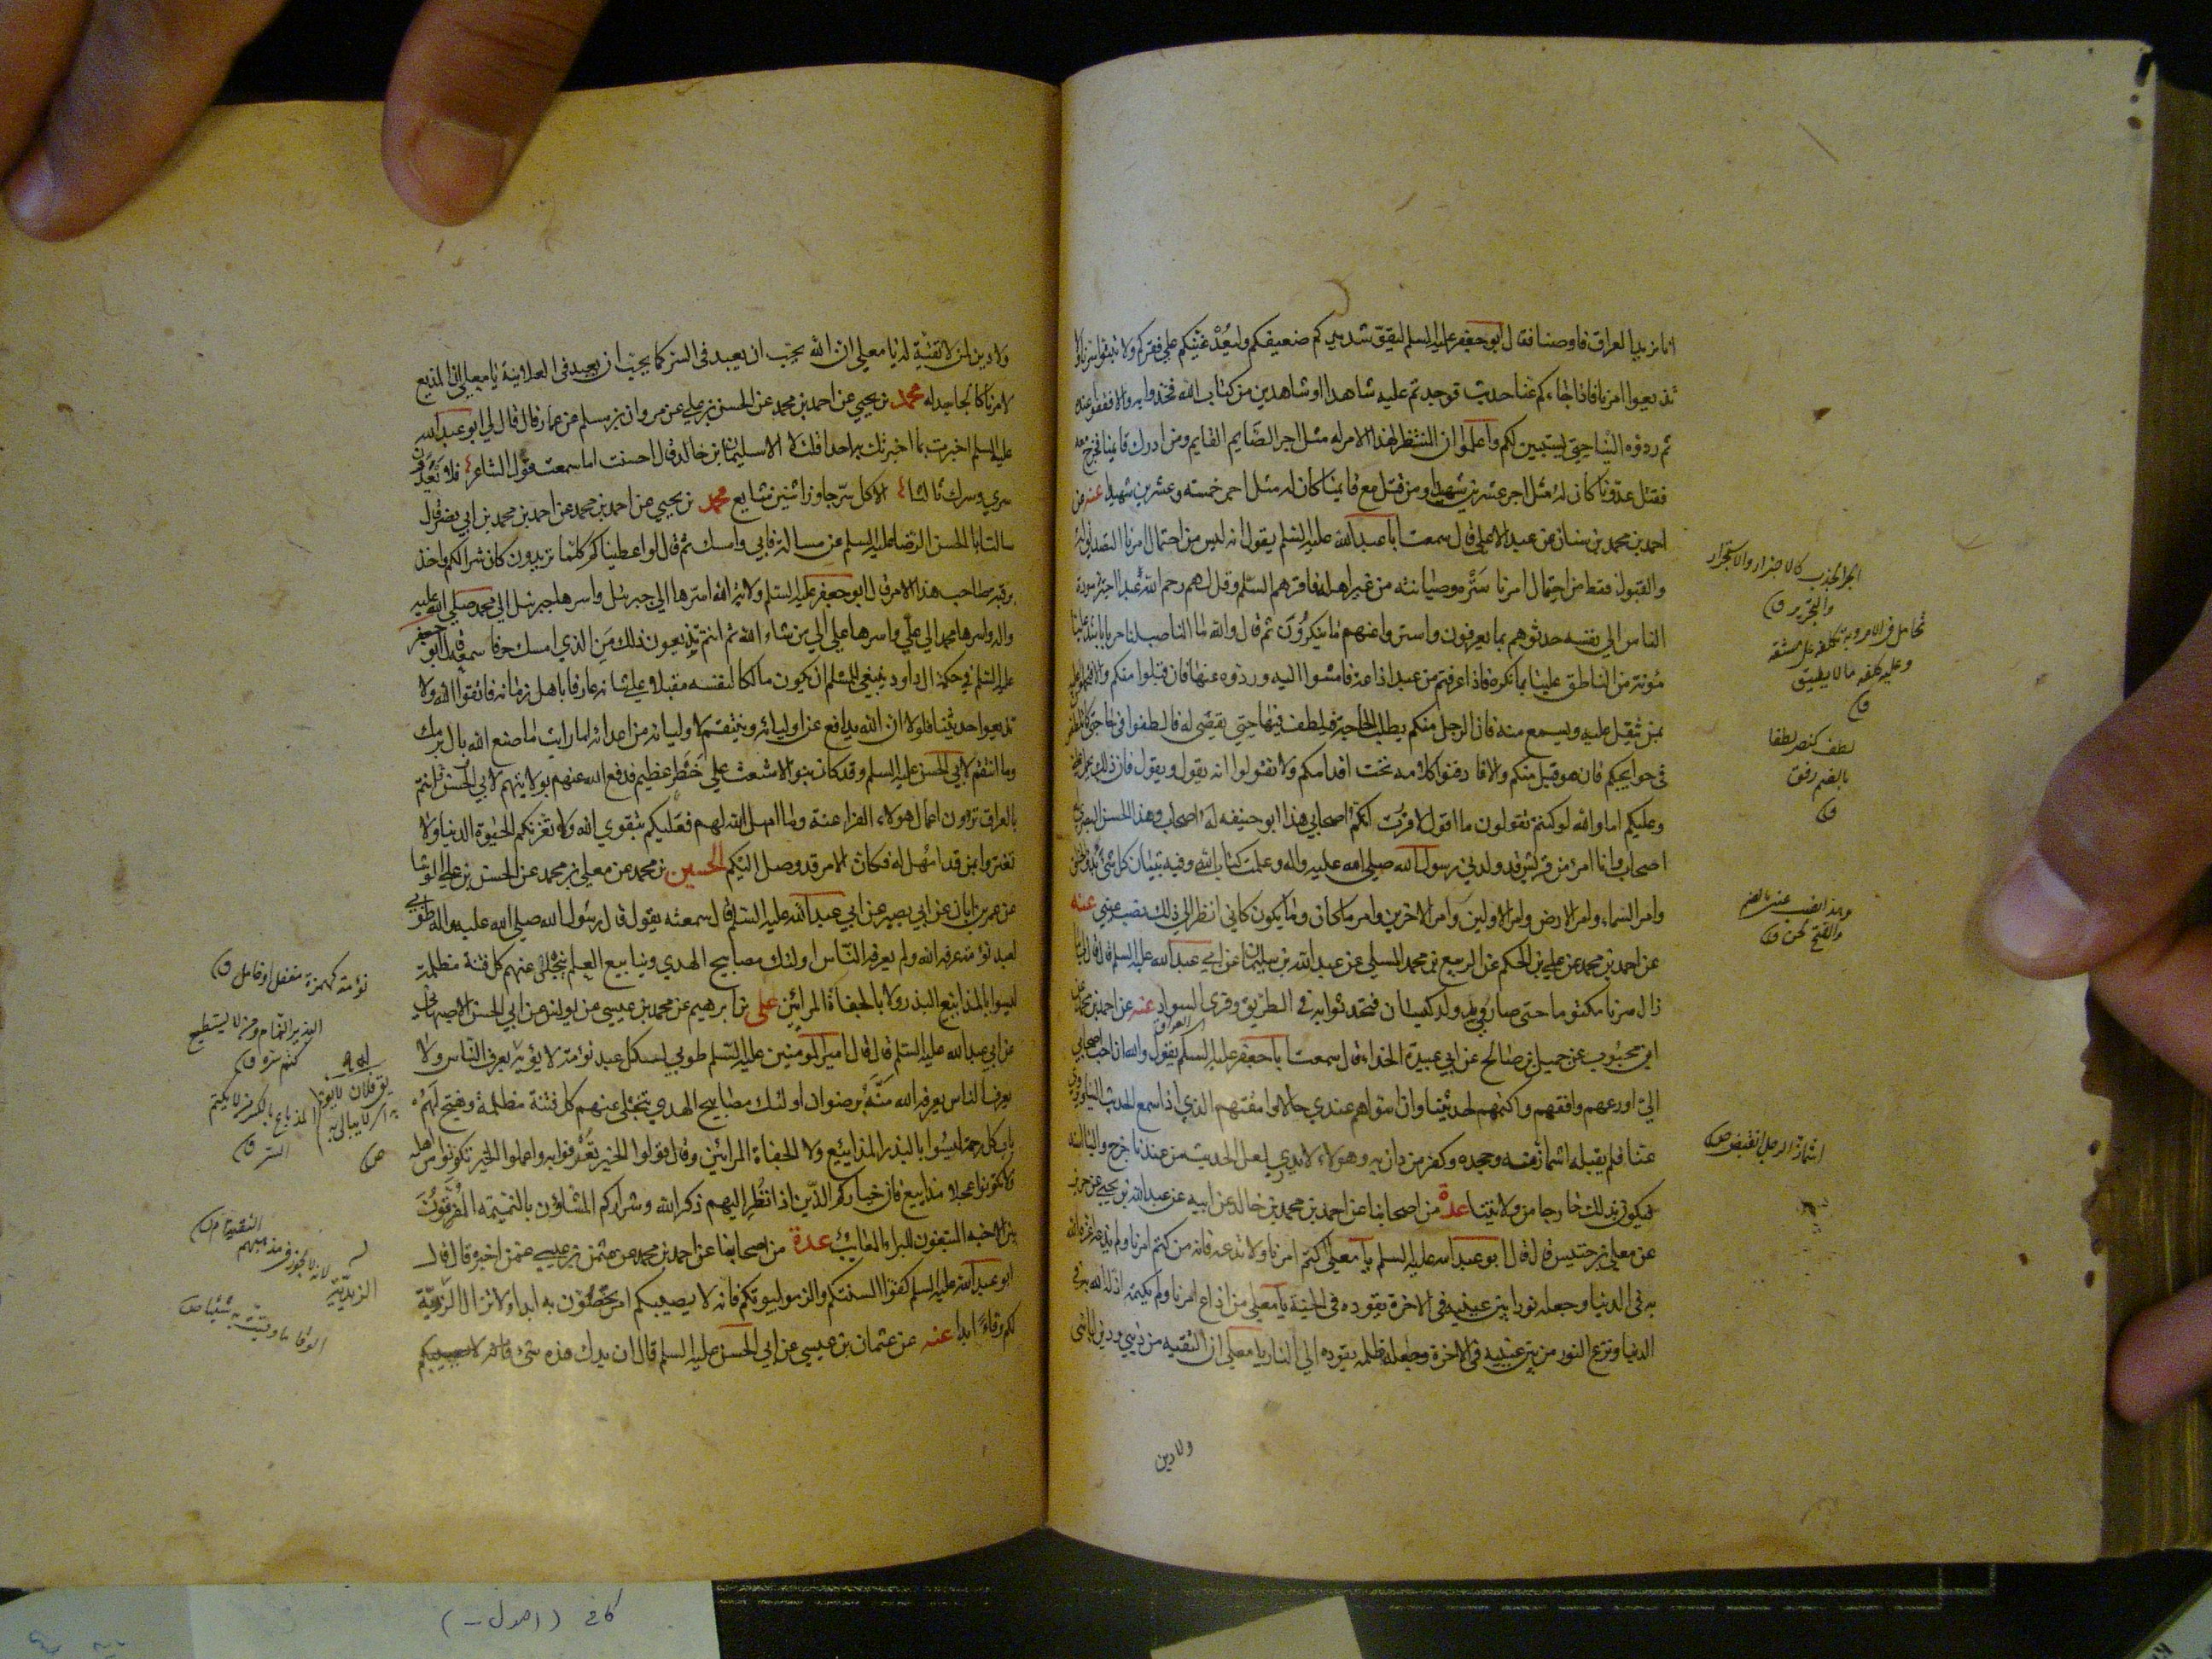 انا نريد العراق فاوصنا فقال ابو جعفر عليه السلم ليقوّ شديدكم ضعيفكم وليعد غنيكم علي فقيركم ولا تبثوا سرنا ولا
تذيعوا امرنا فاذا جاءكم عنا حديث فوجدتم عليه شاهدا او شاهدين من كتاب الله فخذوا به والا فقفوا عنده
ثم ردوه الينا حتي يستبين لكم واعلموا ان المنتظر لهذا الامر له مثل اجر الصايم القايم ومن ادرك قايمنا فخرج معه
فقتل عدونا كان له مثل اجر عشرين شهيدا ومن قتل مع قايمنا كان له مثل اجر خمسة وعشرين شهيدا عنه عن
احمد بن محمد بن سنان عن عبد الاعلي قال سمعت ابا عبد الله عليه السلم يقول انه ليس من احتمال امرنا التصديق له
والقبول فقط من احتمال امرنا ستره وصيانته من غير اهله فاقرهم السلم وقل لهم رحم الله عبدا اجتر مودة
الناس الي نفسه حدثوهم بما يعرفون واستروا عنهم ما ينكرون ثم قال والله ما الناصب لنا حربا باشد علينا
مؤنة من الناطق علينا بما نكره فاذا عرفتم من عبد اذاعة فامشوا اليه وردوه عنها فان قبل منكم والا فتحملوا عليه
بمن يثقل عليه ويسمع منه فان الرجل منكم يطلب الحاجة فيلطف فيها حتي يقضي له فالطفوا في حاجتي كما تلطفون
في حوايجكم فان هو قبل منكم والا فادفنوا كلامه تحت اقدامكم ولا تقولوا انه يقول ويقول فان ذلك يحمل علي
وعليكم اما والله لو كنتم تقولون ما اقول لاقررت انكم اصحابي هذا ابو حنيفه له اصحاب وهذا الحسن البصري له
اصحاب وانا امرؤ من قريش قد ولدني رسول الله صلي الله عليه واله وعلمت كتاب الله وفيه تبيان كل شئ بدو الخلق
وامر السماء وامر الارض وامر الاولين وامر الاخرين وامر ما كان وما يكون كاني انظر الي ذلك نصب عيني عنه
عن احمد بن محمد عن علي بن الحكم عن الربيع بن محمد المسلي عن عبد الله بن سليمان عن ابي عبد الله عليه السلم قال قال لي ما
زال سرنا مكتوما حتي صار في يد ولد كيسان فتحدثوا به في الطريق وقري السواد عنه عن احمد بن محمد عن
ابن محبوب عن جميل بن صالح عن ابي عبيدة الحذاء قال سمعت ابا جعفر عليه السلم يقول والله ان احب اصحابي
الي اورعهم وافقههم واكتمهم لحديثنا وان اسواهم عندي حالا وامقتهم الذي اذا سمع الحديث ينسب الينا ويروي
عنا فلم يقبله اشماز منه وجحده وكفر من دان به وهو لا يدري لعل الحديث من عندنا خرج والينا اسند
فيكون بذلك خارجا من ولايتنا عدة من اصحابنا عن احمد بن محمد بن خالد عن ابيه عن عبد الله بن يحيي عن حريز
عن معلي بن خنيس قال قال ابو عبد الله عليه السلم يا معلي اكتم امرنا ولا تذعه فانه من كتم امرنا ولم يذعه اعزه الله
به في الدنيا وجعله نورا بين عينيه في الاخرة يقوده في الجنة يا معلي من اذاع امرنا ولم يكتمه اذله الله به في
الدنيا ونزع النور من بين عينيه في الاخرة وجعله ظلمة يقوده الي النار يا معلي ان التقية من ديني ودين ابائي
ولا دين
الجر الجذب كالاجترار والاستجرار
والتجرير ق
تحامل في الامر وبه تكلفه علي مشقة
وعليه كلفه ما لا يطيق
ق
لطف كنصر لطفا
بالضم رفق
ق
وهذا نصب عيني بالضم
والفتح لحن ق
اشماز الرجل انقبض ص
ولا دين لمن لا تقية له يا معلي ان الله يحب ان يعبد في السر كما يحب ان يعبد في العلانية يا معلي ان المذيع
لامرنا كالجاحد له محمد بن يحيي عن احمد بن محمد عن الحسن بن علي عن مروان بن مسلم عن عمار قال قال لي ابو عبد الله
عليه السلم اخبرت بما اخبرتك به احدا قلت لا الا سليمان بن خالد قال احسنت اما سمعت قول الشاعر فلا يعدون
سري وسرك ثالثا الا كل سر جاوز اثنين شايع محمد بن يحيي عن احمد بن محمد عن احمد بن محمد بن ابي نصر قال
سالت ابا الحسن الرضا عليه السلم عن مسالة فابي وامسك ثم قال لو اعطيناكم كلما تريدون كان شرا لكم واخذ
برقبة صاحب هذا الامر قال ابو جعفر عليه السلم ولاية الله اسرها الي جبرئيل واسرها جبرئيل الي محمد صلي الله عليه
واله واسرها محمد الي علي واسرها علي الي من شاء الله ثم انتم تذيعون ذلك من الذي امسك حرفا سمعه قال ابو جعفر
عليه السلم في حكمة ال داود ينبغي للمسلم ان يكون مالكا لنفسه مقبلا علي شانه عارفا باهل زمانه فاتقوا الله ولا
تذيعوا حديثنا فلولا ان الله يدافع عن اوليائه وينتقم لاوليائه من اعدائه اما رايت ما صنع الله بال برمك
وما انتقم لابي الحسن عليه السلم وقد كان بنو الاشعث علي خطر عظيم فدفع الله عنهم بولايتهم لابي الحسن وانتم
بالعراق ترون اعمال هولاء الفراعنة وما امهل الله لهم فعليكم بتقوي الله ولا تغرنكم الحيوة الدنيا ولا
تغتروا بمن قد امهل له فكان الامر قد وصل اليكم الحسين بن محمد عن معلي بن محمد عن الحسن بن علي الوشا
عن عمر بن ابان عن ابي بصير عن ابي عبد الله عليه السلم قال سمعته يقول قال رسول الله صلي الله عليه واله طوبي
لعبد نؤمة عرفه الله ولم يعرفه الناس اولئك مصابيح الهدي وينابيع العلم ينجلي عنهم كل فتنة مظلمة
ليسوا بالمذاييع البذر ولا بالجفاة المرائين علي بن ابرهيم عن محمد بن عيسي عن يونس عن ابي الحسن الاصبهاني
عن ابي عبد الله عليه السلم قال قال امير المومنين عليه السلم طوبي لكل عبد نؤمة لا يؤبه له يعرف الناس ولا
يعرفه الناس يعرفه الله منه برضوان اولئك مصابيح الهدي ينجلي عنهم كل فتنة مظلمة ويفتح لهم
باب كل رحمة ليسوا بالبذر المذاييع ولا الجفاة المرائين وقال قولوا الخير تعرفوا به واعملوا الخير تكونوا من اهله
ولا تكونوا عجلا مذاييع فان خياركم الذين اذا نظر اليهم ذكر الله وشراركم المشاؤن بالنميمة المفرقون
بين الاحبة المبتغون للبراء المعايب عدة من اصحابنا عن احمد بن محمد عن عثمن بن عيسي عمن اخبره قال قال
ابو عبد الله عليه السلم كفوا السنتكم والزموا بيوتكم فانه لا يصيبكم امر تخصون به ابدا ولا تزال الزيدية
لكم وقاء ابدا عنه عن عثمان بن عيسي عن ابي الحسن عليه السلم قال ان يدك هذه شئ فان
نؤمة كهمزة مغفل او خامل ق
البذير النمام ومن لا يستطيع
كتم سره ق
المذياع بالكسر من لا يكتم
السر ق
ص
الزيدية
كافى (اصول -)